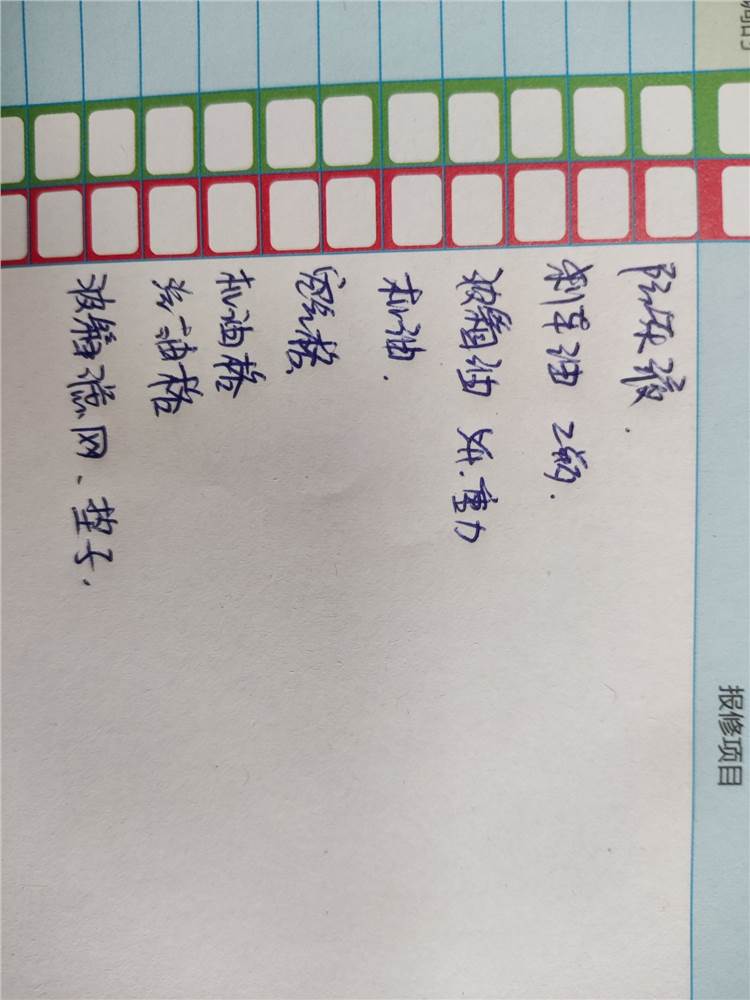 报修项目
防冻液.
刹车油 2瓶.
波箱油 重力
机油.
空气格
机油格
汽油格
波箱滤网、垫子.